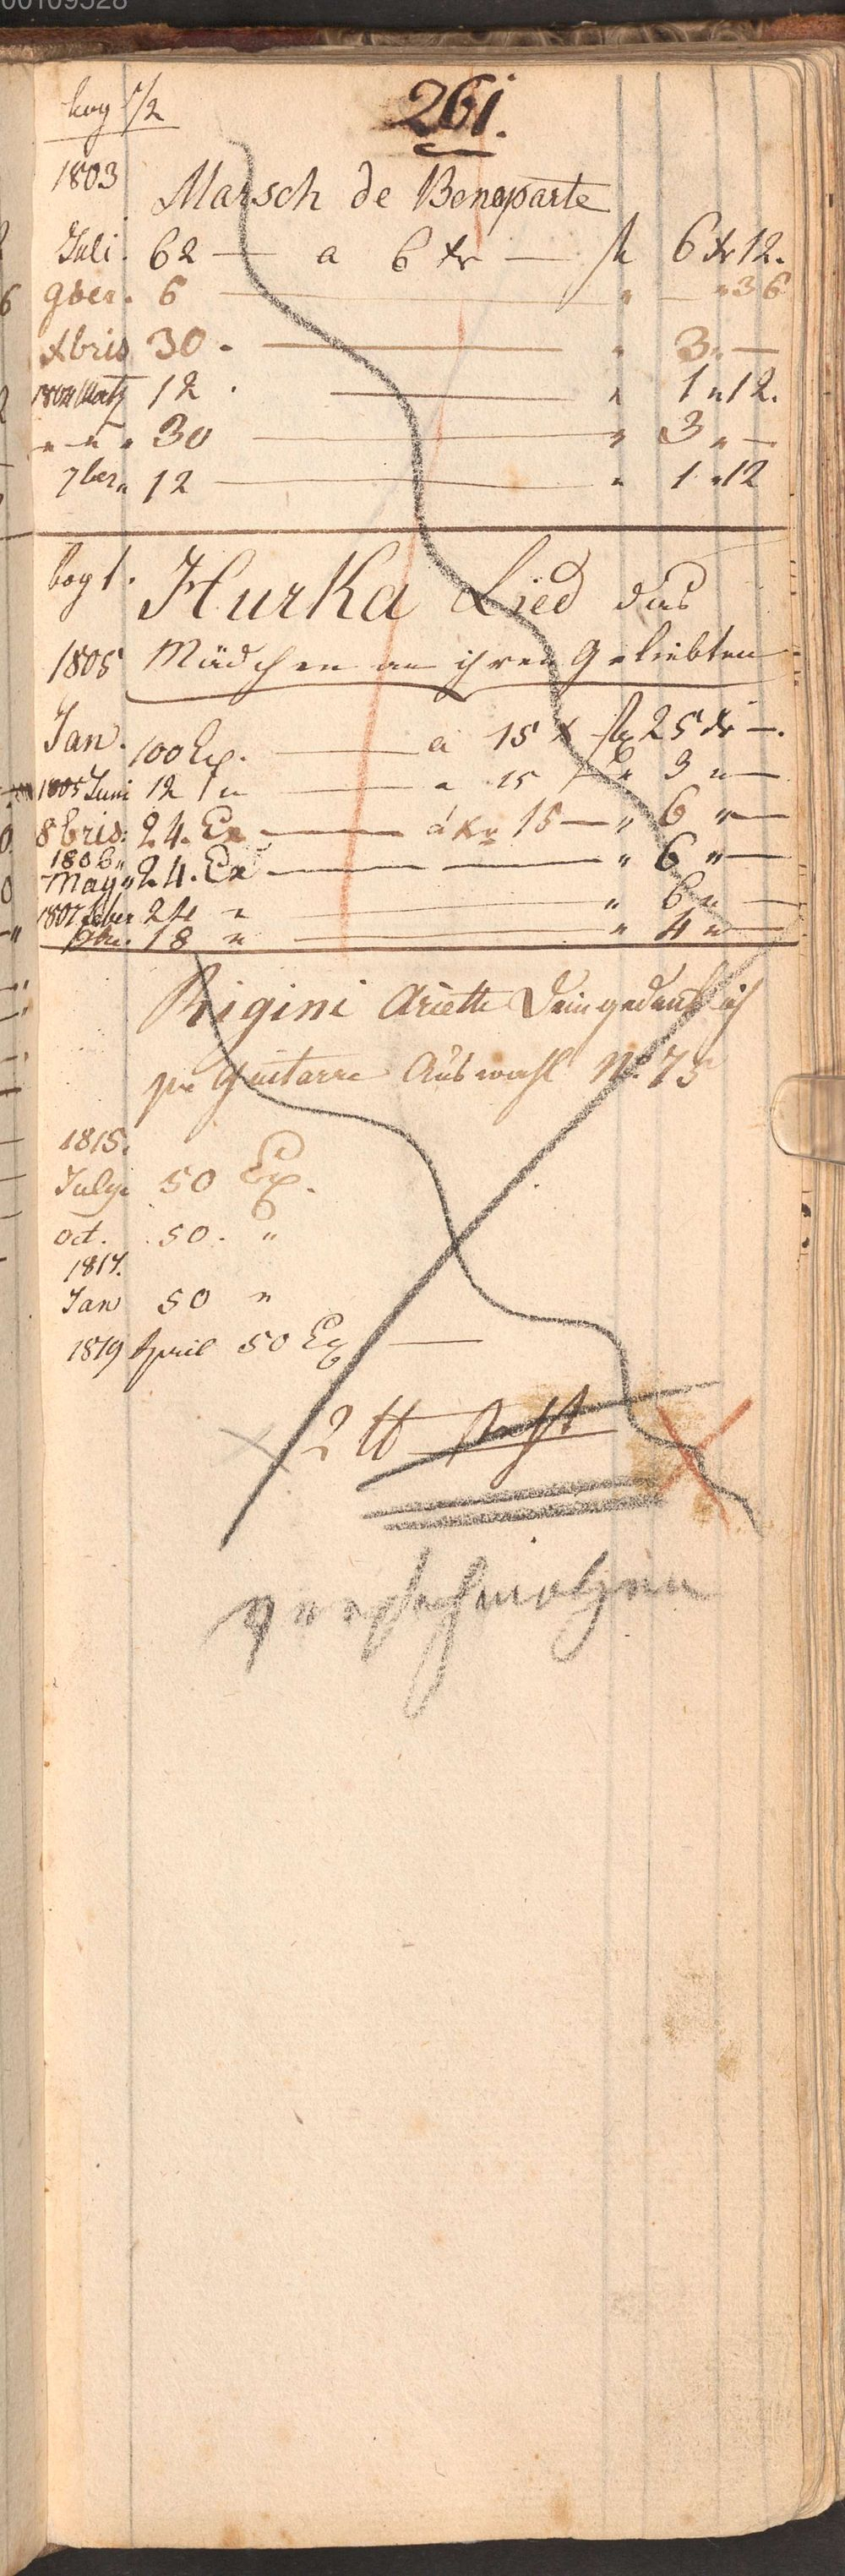 00109528
bog 1/2
261.
1803 Marsch de Bonaparte
Juli. 62 — a 6 xr — f 6 xr 12.
9ber. 6 — " — " 36
Xbris 30 - — " 3 " —
1804 Martz 12 . — " 1 " 12.
" — " " 30 — " 3 " —
7ber " 12 — " 1 " 12
bog 1. Hurka Lied das
1805 Mädchen an ihren Geliebten
Jan. 100 Ex. — a 15 x f 25 xr —.
1805 Juni 12 " — a 15 — " 3 " —
8bris: 24. Ex — á Xr 15 — " 6 " —
1806 "
May " 24. Ex — " 6 " —
1807 24 " — " 6 " —
18 " — " 4 " —
Rigini Ariette Dein gedenk ich
pr Guitarre Auswahl No. 75
1815.
July. 50 Ex.
oct. 50. "
1817.
Jan 50 "
1819 April 50 Ex —
2 tt
verschmolzen